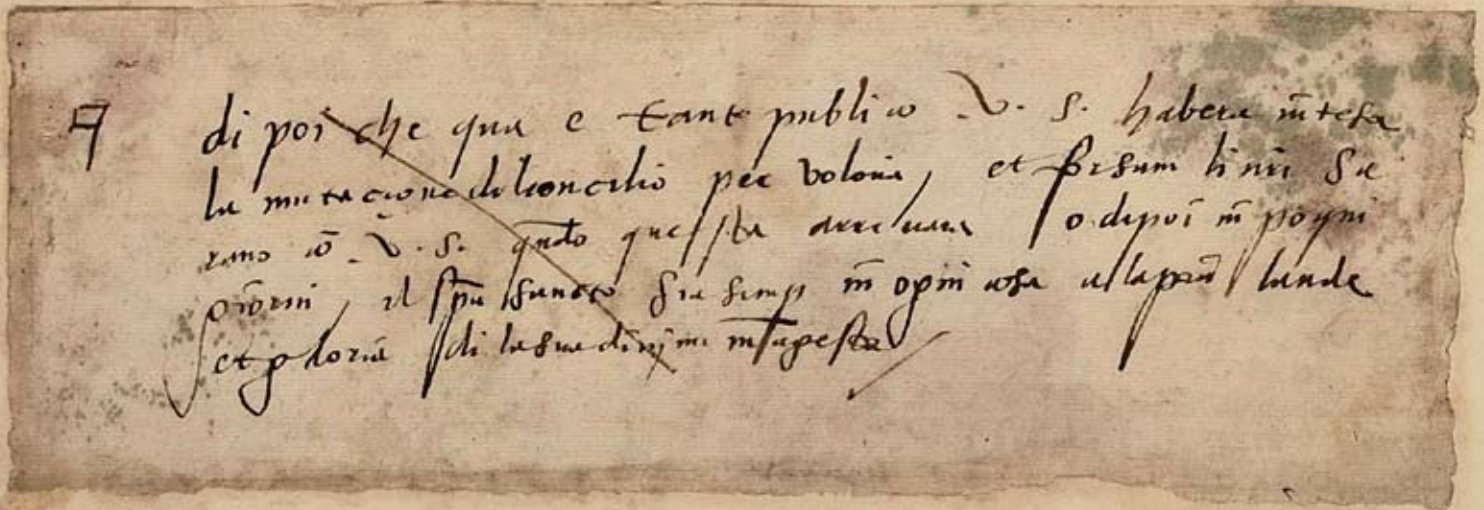 di poi che qua e tanto publico .V. S. habera intesa
la mutacione del concilio per bolonia, et forsam li nri sa
rano co .V. S. qndo questa arrivara o dipoi in pogni
giorni, il spu sancto sia semp in ogni cosa a la laude
et gloria di la sua divi maiesta